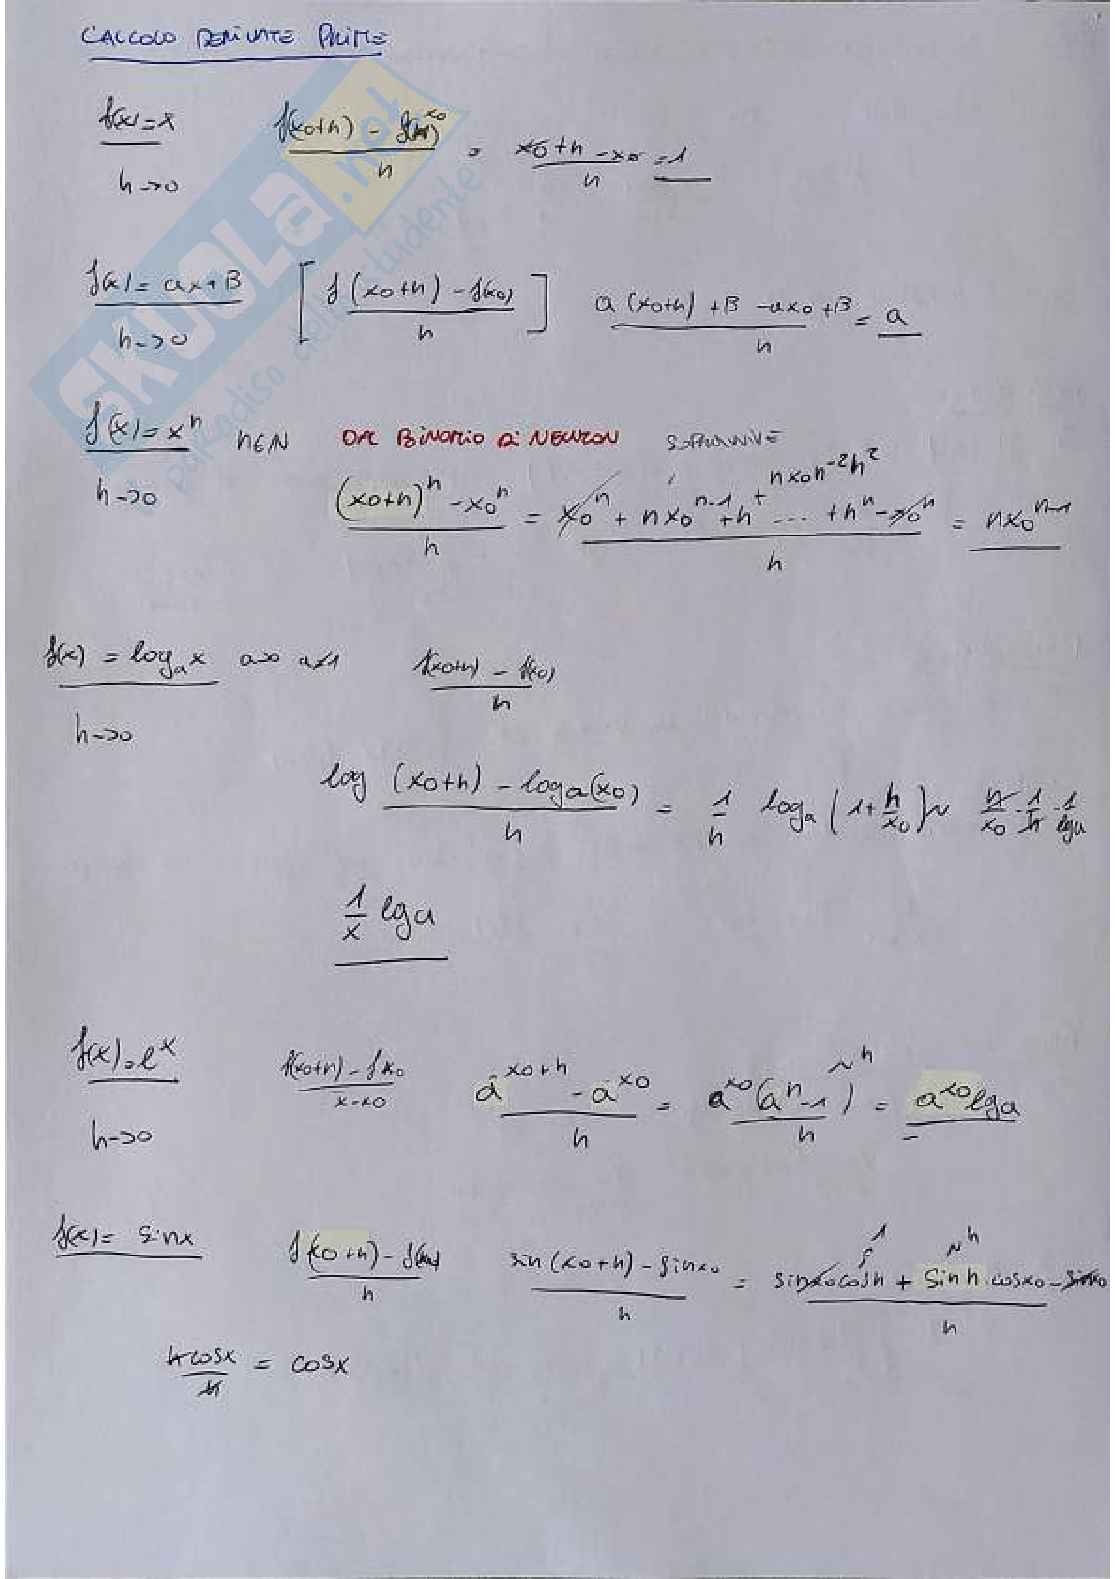 CALCOLO DERIVATE PRIME
f(x)=x f(x0+h) - f(x0) / h = x0+h-x0 / h = 1
h->0
f(x)=ax+B [ f(x0+h) - f(x0) / h ] a(x0+h)+B-ax0+B / h = a
h->0
f(x)=x^n n∈N BINOMIO DI NEWTON
h->0 (x0+h)^n - x0^n / h = x0^n + nx0^n-1 +h^ + nx0n^-2h^2 ... +h^n - x0^n / h = nx0^n-1
f(x) = log_a x a>0 a≠1 f(x0+h) - f(x0) / h
h->0
log (x0+h) - loga(x0) / h = 1/h log_a (1+h/x0) ~ h/x0 · 1/h · 1/lga
1/x lga
f(x)=e^x f(x0+h) - fx0 / x-x0 a^x0+h - a^x0 / h = a^x0(a^h-1) ~h / h = a^x0 lga
h->0
f(x)= sinx f(x0+h) - f(x0) / h sin(x0+h) - sinx0 / h = sinx0cosh 1 + sinh ~h · cosx0 - sinx0 / h
hcosx / h = cosx
SKUOLA.net
paradiso dello studente